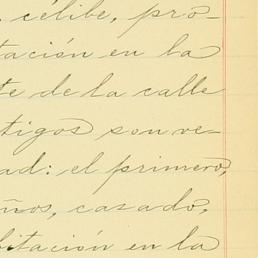 célibe, pro-
tación en la
te de la calle
tigos son ve-
ad: el primero,
ños, casado,
bitación en la